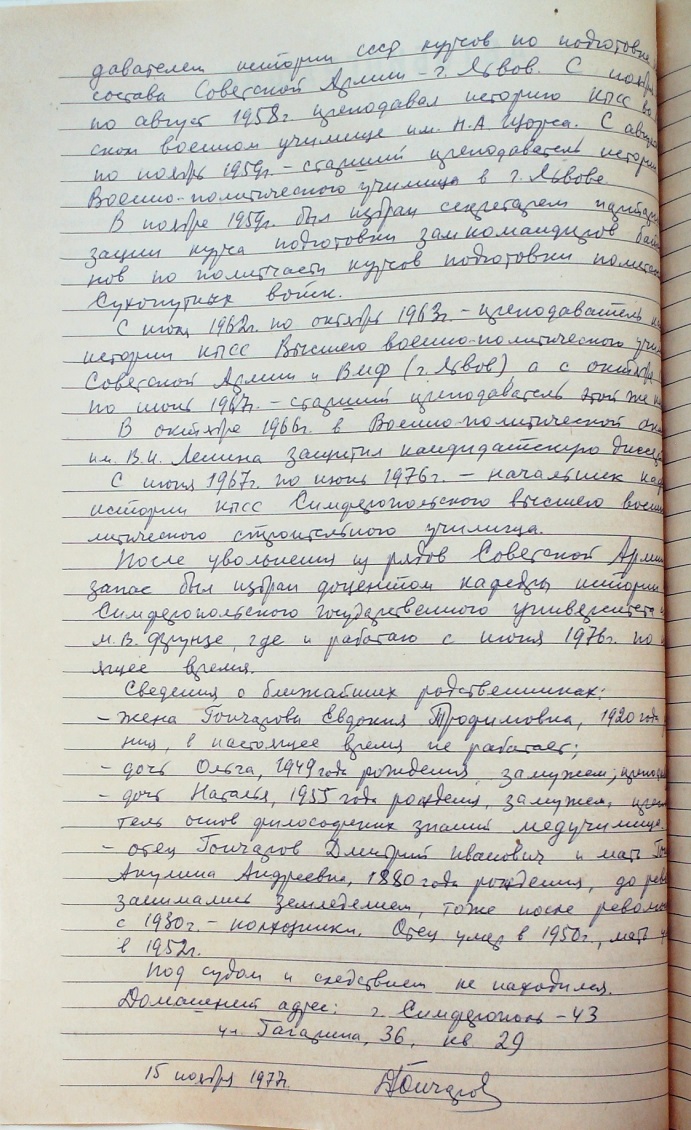 давателем истории СССР курсов по подготовке
состава Советской Армии - г. Львов. С нояб
по август 1958г. преподавал историю КПСС в
ском военном училище им. Н.А. Щорса. С август
по ноябрь 1959г. - старший преподаватель истори
Военно-политического училища в г. Львове.
В ноябре 1959г. был избран секретарем парторга
зации курса подготовки замкомандиров баталь
нов по политчасти курсов подготовки политсос
Сухопутных войск.
С июля 1962г. по октябрь 1963г. - преподаватель
истории КПСС Высшего военно-политического учил
Советской Армии и ВМФ (г. Львов) а с октября
по июнь 1967г. - старший преподаватель этой же
В октябре 1966г. в Военно-политической ака
им. В.И. Ленина защитил кандидатскую диссер
С июня 1967г. по июнь 1976г. - начальник каф
истории КПСС Симферопольского высшего военно
литического строительного училища.
После увольнения из рядов Советской Армии
запас был избран доцентом кафедры истории
Симферопольского государственного университета
М.В. Фрунзе, где и работаю с июня 1976г. по
ящее время.
Сведения о ближайших родственниках:
- жена Гончарова Евдокия Трофимовна, 1920 года
ния, в настоящее время не работает;
- дочь Ольга, 1949 года рождения, замужем; препод
- дочь Наталья, 1955 года рождения, замужем, препо
тель основ философских знаний медучилища.
- отец Гончаров Дмитрий Иванович и мать Гон
Акулина Андреевна, 1880 года рождения, до рев
занимались земледелием, тоже после револю
с 1930г. - колхозники. Отец умер в 1950г., мать
в 1952г.
Под судом и следствием не находился.
Домашний адрес: г. Симферополь - 43
ул. Гагарина, 36, кв 29
15 ноября 1977г. ДГончаров